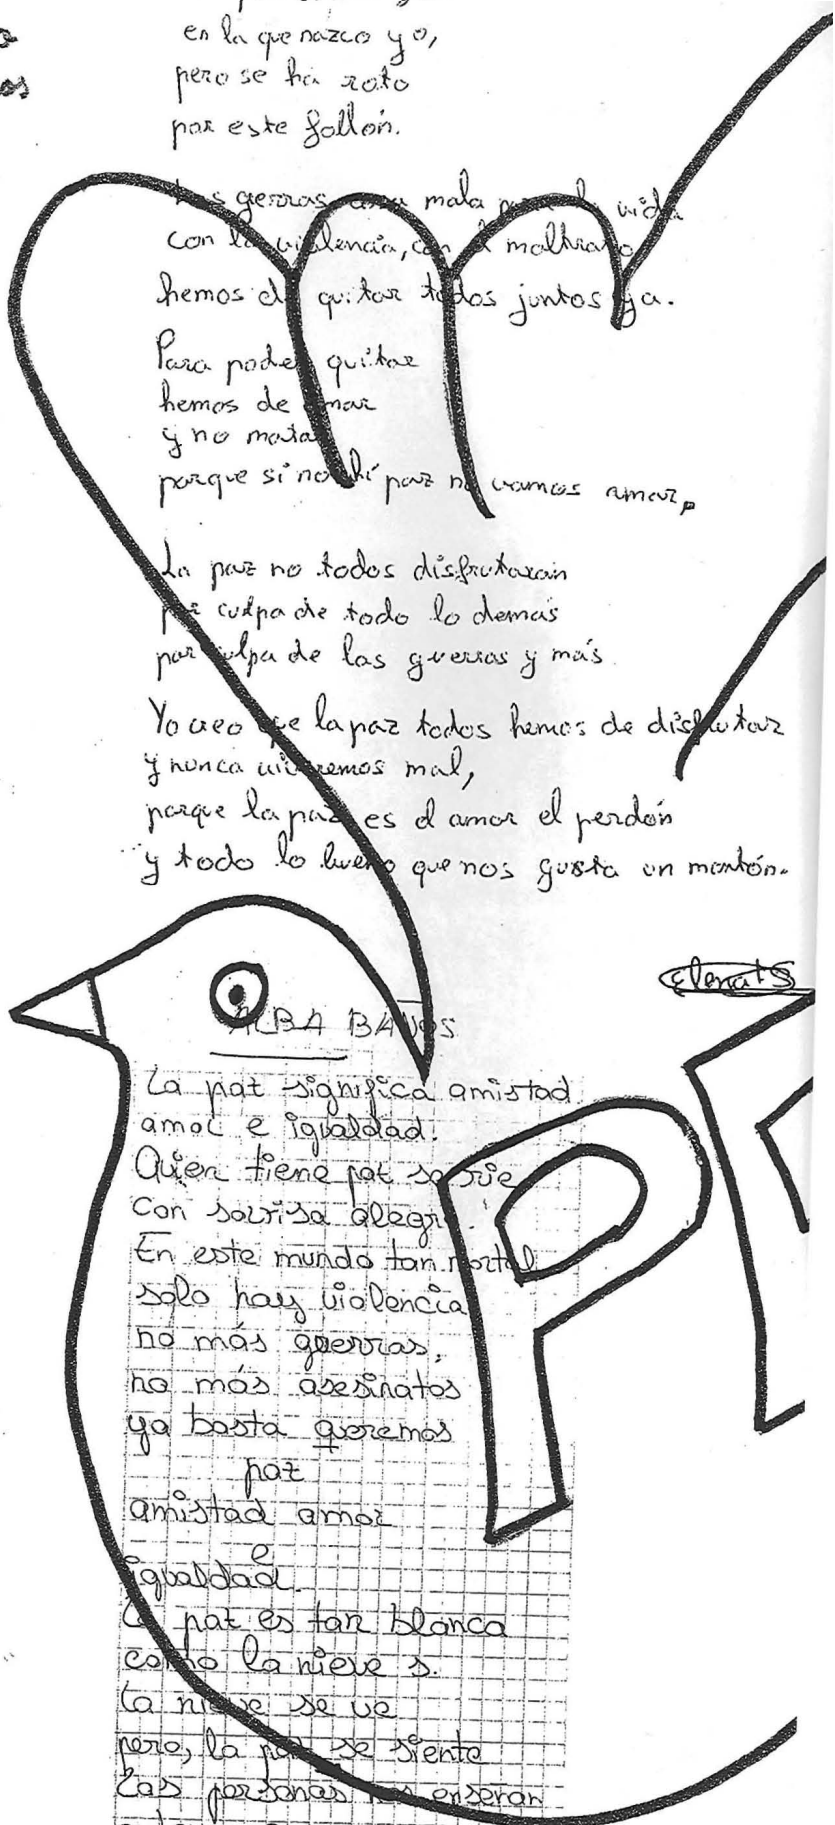 en la que nazco yo,
pero se ha roto
por este follón.
gerras mala vida
con la violencia, con el maltrato
hemos de quitar todos juntos ya.
Para poder quitar
hemos de amar
y no matar
porque si no hí paz no vamos amar.
La paz no todos disfrutaran
por culpa de todo lo demás
por culpa de las guerras y más
Yo creo que la paz todos hemos de disfrutar
y nunca viviremos mal,
porque la paz es el amor el perdón
y todo lo bueno que nos gusta un montón.
Elena
ALBA BAÑOS
La paz significa amistad
amor e igualdad.
Quien tiene paz sonrie
con sonrisa alegre.
En este mundo tan mortal
solo hay violencia
no más guerras,
no más asesinatos
ya basta queremos
paz
amistad amor
e
igualdad.
La paz es tan blanca
como la nieve s.
La nieve se ve
pero, la paz se siente
Las personas nos enseñan
P